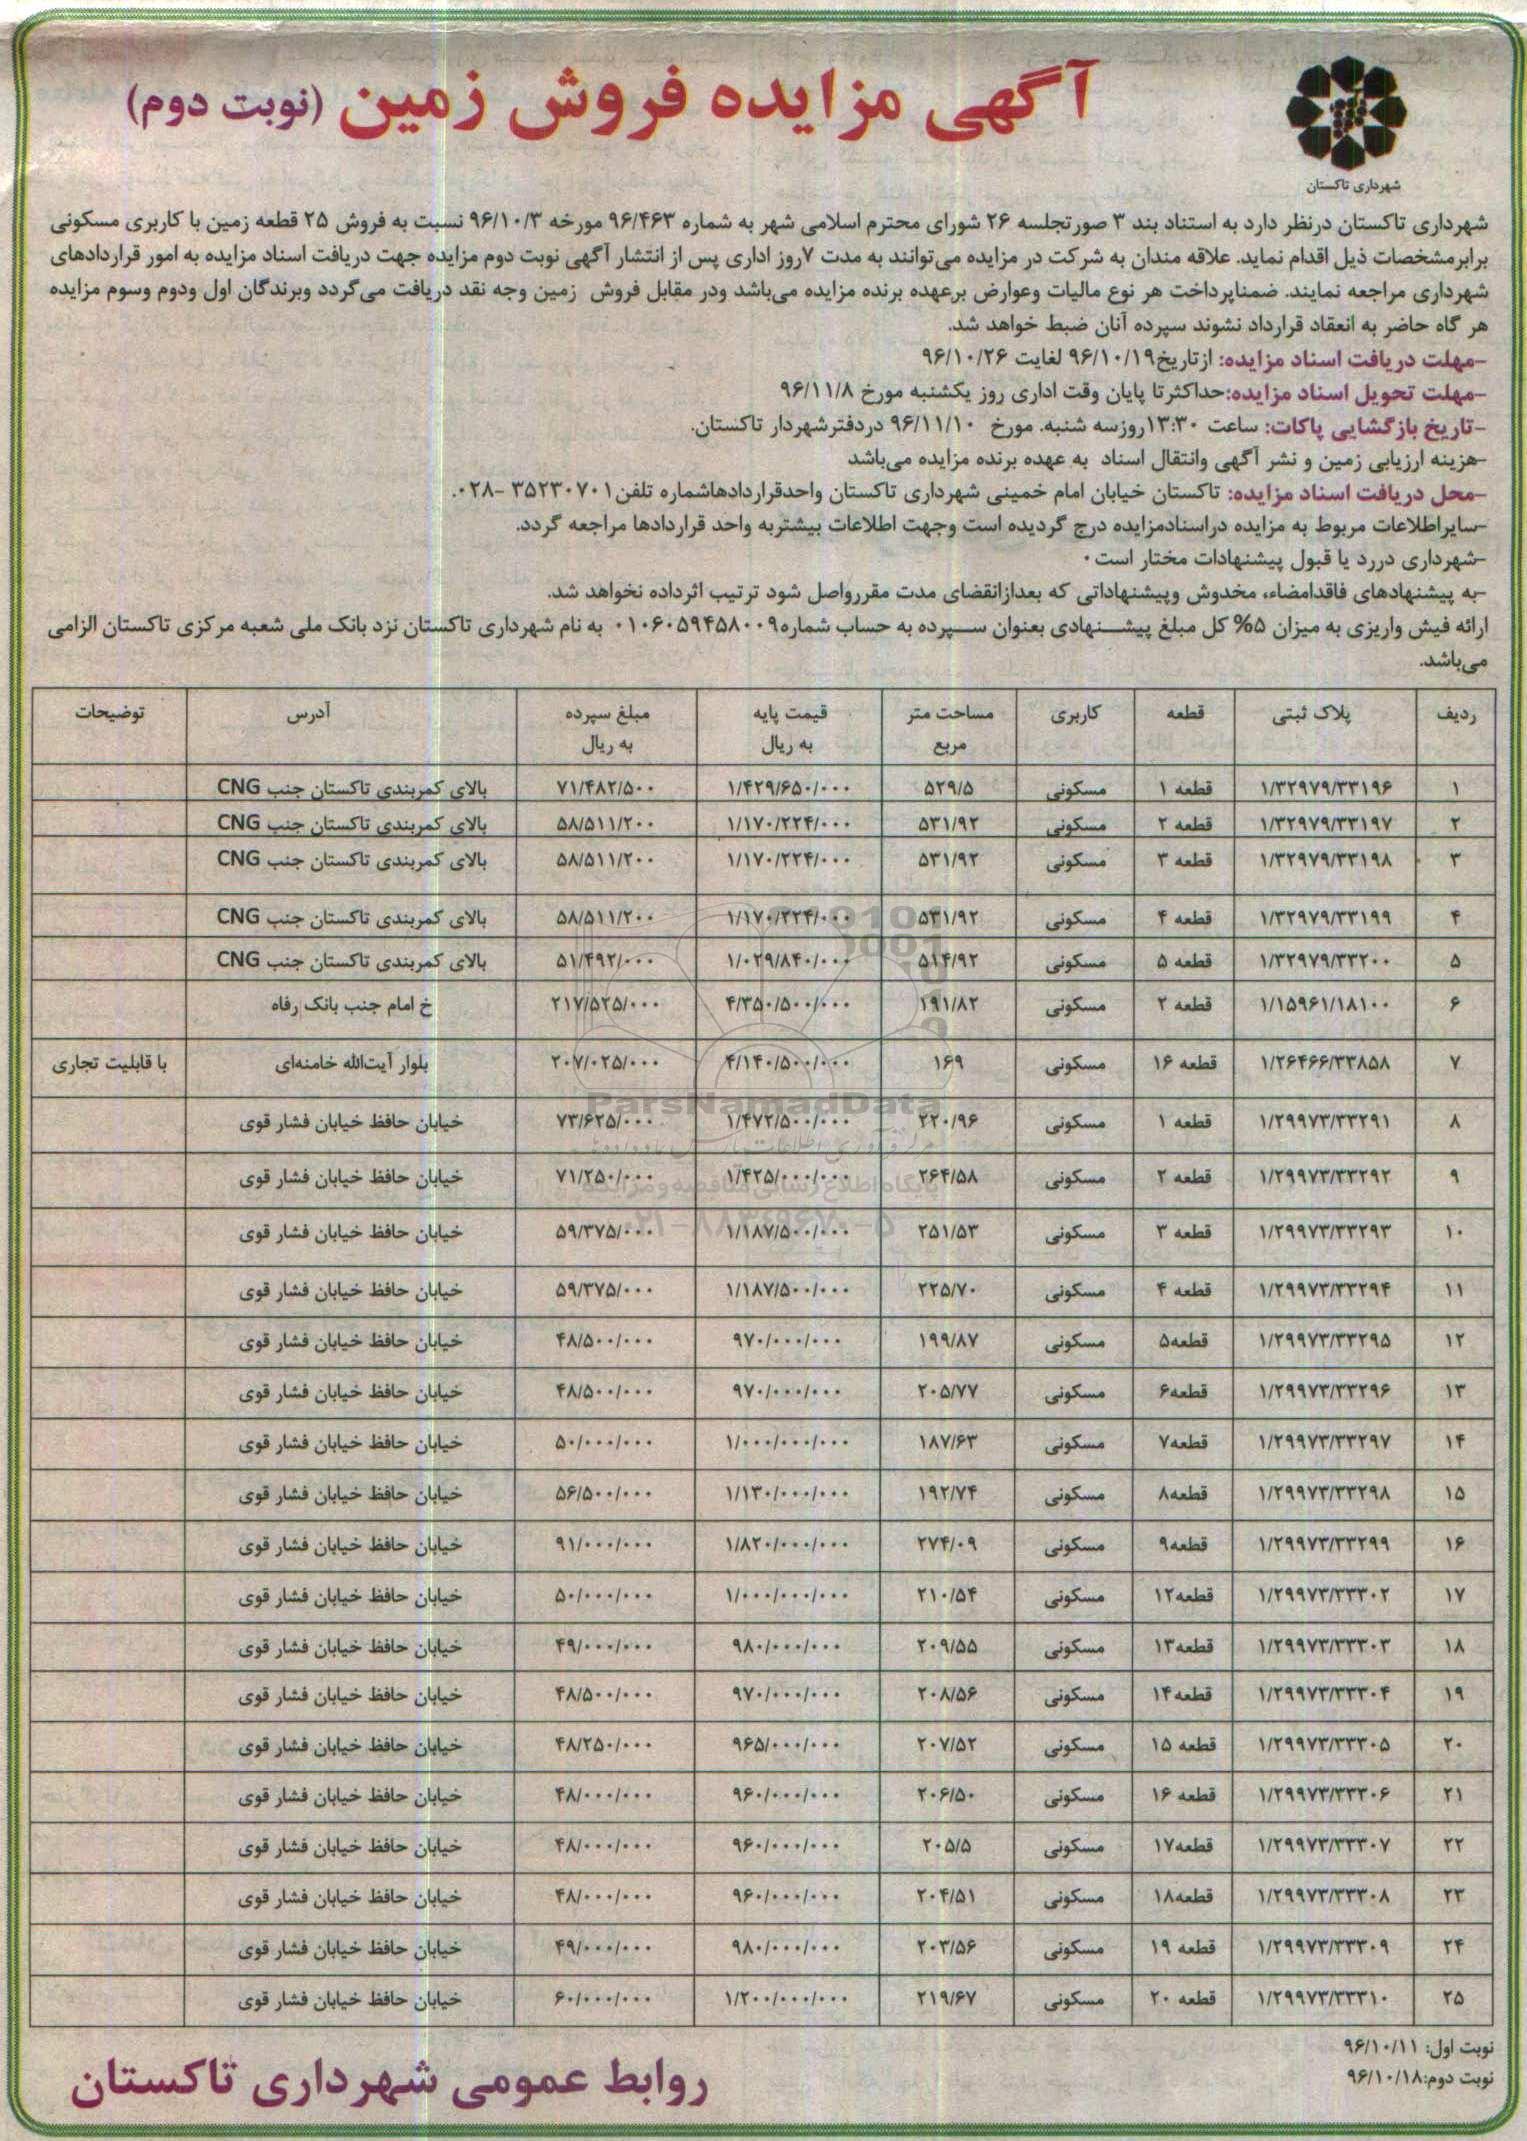 آگهی مزایده فروش زمین (نوبت دوم)
شهرداری تاکستان
شهرداری تاکستان درنظر دارد به استناد بند ۳ صورتجلسه ۲۶ شورای محترم اسلامی شهر به شماره ۹۶/۴۶۳ مورخه ۹۶/۱۰/۳ نسبت به فروش ۲۵ قطعه زمین با کاربری مسکونی
برابرمشخصات ذیل اقدام نماید. علاقه مندان به شرکت در مزایده می‌توانند به مدت ۷روز اداری پس از انتشار آگهی نوبت دوم مزایده جهت دریافت اسناد مزایده به امور قراردادهای
شهرداری مراجعه نمایند. ضمناپرداخت هر نوع مالیات وعوارض برعهده برنده مزایده می‌باشد ودر مقابل فروش زمین وجه نقد دریافت می‌گردد وبرندگان اول ودوم وسوم مزایده
هر گاه حاضر به انعقاد قرارداد نشوند سپرده آنان ضبط خواهد شد.
-مهلت دریافت اسناد مزایده: ازتاریخ۹۶/۱۰/۱۹ لغایت ۹۶/۱۰/۲۶
-مهلت تحویل اسناد مزایده:حداکثرتا پایان وقت اداری روز یکشنبه مورخ ۹۶/۱۱/۸
-تاریخ بازگشایی پاکات: ساعت ۱۳:۳۰روزسه شنبه. مورخ ۹۶/۱۱/۱۰ دردفترشهردار تاکستان.
-هزینه ارزیابی زمین و نشر آگهی وانتقال اسناد به عهده برنده مزایده می‌باشد
-محل دریافت اسناد مزایده: تاکستان خیابان امام خمینی شهرداری تاکستان واحدقراردادهاشماره تلفن۳۵۲۳۰۷۰۱ -۰۲۸.
-سایراطلاعات مربوط به مزایده دراسنادمزایده درج گردیده است وجهت اطلاعات بیشتربه واحد قراردادها مراجعه گردد.
-شهرداری دررد یا قبول پیشنهادات مختار است۰
-به پیشنهادهای فاقدامضاء، مخدوش وپیشنهاداتی که بعدازانقضای مدت مقررواصل شود ترتیب اثرداده نخواهد شد.
ارائه فیش واریزی به میزان ۵% کل مبلغ پیشنهادی بعنوان سپرده به حساب شماره۰۱۰۶۰۵۹۴۵۸۰۰۹ به نام شهرداری تاکستان نزد بانک ملی شعبه مرکزی تاکستان الزامی
می‌باشد.
ردیف پلاک ثبتی قطعه کاربری مساحت متر مربع قیمت پایه به ریال مبلغ سپرده به ریال آدرس توضیحات
۱ ۱/۳۲۹۷۹/۳۳۱۹۶ قطعه ۱ مسکونی ۵۲۹/۵ ۱/۴۲۹/۶۵۰/۰۰۰ ۷۱/۴۸۲/۵۰۰ بالای کمربندی تاکستان جنب CNG
۲ ۱/۳۲۹۷۹/۳۳۱۹۷ قطعه ۲ مسکونی ۵۳۱/۹۲ ۱/۱۷۰/۲۲۴/۰۰۰ ۵۸/۵۱۱/۲۰۰ بالای کمربندی تاکستان جنب CNG
۳ ۱/۳۲۹۷۹/۳۳۱۹۸ قطعه ۳ مسکونی ۵۳۱/۹۲ ۱/۱۷۰/۲۲۴/۰۰۰ ۵۸/۵۱۱/۲۰۰ بالای کمربندی تاکستان جنب CNG
۴ ۱/۳۲۹۷۹/۳۳۱۹۹ قطعه ۴ مسکونی ۵۳۱/۹۲ ۱/۱۷۰/۲۲۴/۰۰۰ ۵۸/۵۱۱/۲۰۰ بالای کمربندی تاکستان جنب CNG
۵ ۱/۳۲۹۷۹/۳۳۲۰۰ قطعه ۵ مسکونی ۵۱۴/۹۲ ۱/۰۲۹/۸۴۰/۰۰۰ ۵۱/۴۹۲/۰۰۰ بالای کمربندی تاکستان جنب CNG
۶ ۱/۱۵۹۶۱/۱۸۱۰۰ قطعه ۲ مسکونی ۱۹۱/۸۲ ۴/۳۵۰/۵۰۰/۰۰۰ ۲۱۷/۵۲۵/۰۰۰ خ امام جنب بانک رفاه
۷ ۱/۲۶۴۶۶/۳۳۸۵۸ قطعه ۱۶ مسکونی ۱۶۹ ۴/۱۴۰/۵۰۰/۰۰۰ ۲۰۷/۰۲۵/۰۰۰ بلوار آیت‌الله خامنه‌ای با قابلیت تجاری
۸ ۱/۲۹۹۷۳/۳۳۲۹۱ قطعه ۱ مسکونی ۲۲۰/۹۶ ۱/۴۷۲/۵۰۰/۰۰۰ ۷۳/۶۲۵/۰۰۰ خیابان حافظ خیابان فشار قوی
۹ ۱/۲۹۹۷۳/۳۳۲۹۲ قطعه ۲ مسکونی ۲۶۴/۵۸ ۱/۴۲۵/۰۰۰/۰۰۰ ۷۱/۲۵۰/۰۰۰ خیابان حافظ خیابان فشار قوی
۱۰ ۱/۲۹۹۷۳/۳۳۲۹۳ قطعه ۳ مسکونی ۲۵۱/۵۳ ۱/۱۸۷/۵۰۰/۰۰۰ ۵۹/۳۷۵/۰۰۰ خیابان حافظ خیابان فشار قوی
۱۱ ۱/۲۹۹۷۳/۳۳۲۹۴ قطعه ۴ مسکونی ۲۲۵/۷۰ ۱/۱۸۷/۵۰۰/۰۰۰ ۵۹/۳۷۵/۰۰۰ خیابان حافظ خیابان فشار قوی
۱۲ ۱/۲۹۹۷۳/۳۳۲۹۵ قطعه۵ مسکونی ۱۹۹/۸۷ ۹۷۰/۰۰۰/۰۰۰ ۴۸/۵۰۰/۰۰۰ خیابان حافظ خیابان فشار قوی
۱۳ ۱/۲۹۹۷۳/۳۳۲۹۶ قطعه۶ مسکونی ۲۰۵/۷۷ ۹۷۰/۰۰۰/۰۰۰ ۴۸/۵۰۰/۰۰۰ خیابان حافظ خیابان فشار قوی
۱۴ ۱/۲۹۹۷۳/۳۳۲۹۷ قطعه۷ مسکونی ۱۸۷/۶۳ ۱/۰۰۰/۰۰۰/۰۰۰ ۵۰/۰۰۰/۰۰۰ خیابان حافظ خیابان فشار قوی
۱۵ ۱/۲۹۹۷۳/۳۳۲۹۸ قطعه۸ مسکونی ۱۹۲/۷۴ ۱/۱۳۰/۰۰۰/۰۰۰ ۵۶/۵۰۰/۰۰۰ خیابان حافظ خیابان فشار قوی
۱۶ ۱/۲۹۹۷۳/۳۳۲۹۹ قطعه۹ مسکونی ۲۷۴/۰۹ ۱/۸۲۰/۰۰۰/۰۰۰ ۹۱/۰۰۰/۰۰۰ خیابان حافظ خیابان فشار قوی
۱۷ ۱/۲۹۹۷۳/۳۳۳۰۲ قطعه۱۲ مسکونی ۲۱۰/۵۴ ۱/۰۰۰/۰۰۰/۰۰۰ ۵۰/۰۰۰/۰۰۰ خیابان حافظ خیابان فشار قوی
۱۸ ۱/۲۹۹۷۳/۳۳۳۰۳ قطعه۱۳ مسکونی ۲۰۹/۵۵ ۹۸۰/۰۰۰/۰۰۰ ۴۹/۰۰۰/۰۰۰ خیابان حافظ خیابان فشار قوی
۱۹ ۱/۲۹۹۷۳/۳۳۳۰۴ قطعه۱۴ مسکونی ۲۰۸/۵۶ ۹۷۰/۰۰۰/۰۰۰ ۴۸/۵۰۰/۰۰۰ خیابان حافظ خیابان فشار قوی
۲۰ ۱/۲۹۹۷۳/۳۳۳۰۵ قطعه ۱۵ مسکونی ۲۰۷/۵۲ ۹۶۵/۰۰۰/۰۰۰ ۴۸/۲۵۰/۰۰۰ خیابان حافظ خیابان فشار قوی
۲۱ ۱/۲۹۹۷۳/۳۳۳۰۶ قطعه ۱۶ مسکونی ۲۰۶/۵۰ ۹۶۰/۰۰۰/۰۰۰ ۴۸/۰۰۰/۰۰۰ خیابان حافظ خیابان فشار قوی
۲۲ ۱/۲۹۹۷۳/۳۳۳۰۷ قطعه۱۷ مسکونی ۲۰۵/۵ ۹۶۰/۰۰۰/۰۰۰ ۴۸/۰۰۰/۰۰۰ خیابان حافظ خیابان فشار قوی
۲۳ ۱/۲۹۹۷۳/۳۳۳۰۸ قطعه۱۸ مسکونی ۲۰۴/۵۱ ۹۶۰/۰۰۰/۰۰۰ ۴۸/۰۰۰/۰۰۰ خیابان حافظ خیابان فشار قوی
۲۴ ۱/۲۹۹۷۳/۳۳۳۰۹ قطعه ۱۹ مسکونی ۲۰۳/۵۶ ۹۸۰/۰۰۰/۰۰۰ ۴۹/۰۰۰/۰۰۰ خیابان حافظ خیابان فشار قوی
۲۵ ۱/۲۹۹۷۳/۳۳۳۱۰ قطعه ۲۰ مسکونی ۲۱۹/۶۷ ۱/۲۰۰/۰۰۰/۰۰۰ ۶۰/۰۰۰/۰۰۰ خیابان حافظ خیابان فشار قوی
ParsNamadData
پایگاه اطلاع رسانی مناقصه و مزایده
۰۲۱-۸۸۳۴۹۶۷۰-۵
نوبت اول: ۹۶/۱۰/۱۱
نوبت دوم:۹۶/۱۰/۱۸
روابط عمومی شهرداری تاکستان